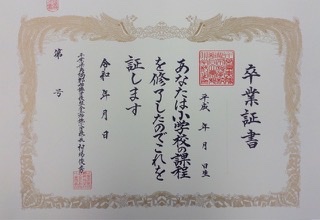 卒業証書
平成 年 月 日生
あなたは小学校の課程
を修了したのでこれを
証します
令和 年 月 日
第 号